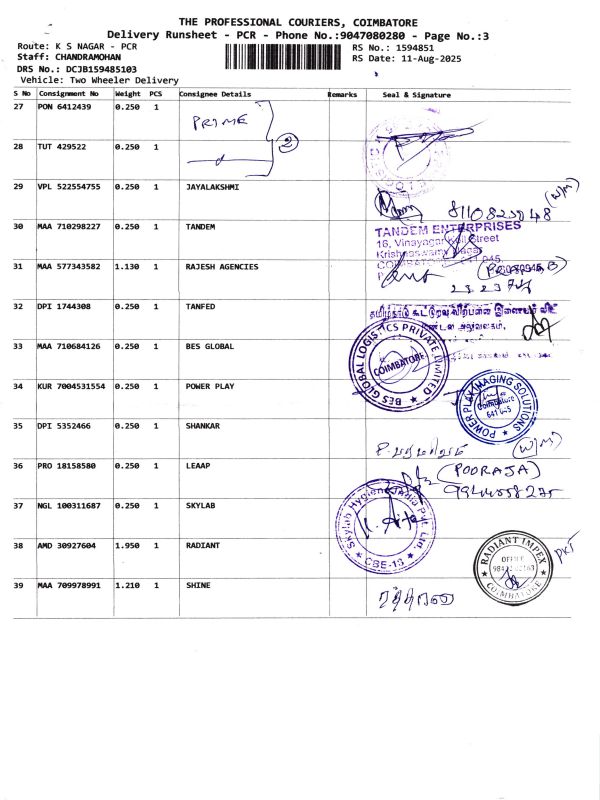 THE PROFESSIONAL COURIERS, COIMBATORE
Delivery Runsheet - PCR - Phone No.:9047080280 - Page No.:3
Route: K S NAGAR - PCR
RS No.: 1594851
Staff: CHANDRAMOHAN
RS Date: 11-Aug-2025
DRS No.: DCJB159485103
Vehicle: Two Wheeler Delivery
S No Consignment No Weight PCS Consignee Details Remarks Seal & Signature
27 PON 6412439 0.250 1
PRIME
28 TUT 429522 0.250 1
2
29 VPL 522554755 0.250 1 JAYALAKSHMI
(W/M)
30 MAA 710298227 0.250 1 TANDEM
TANDEM ENTERPRISES
16, Vinayagar Koil Street
Krishnaswamy Nagar
31 MAA 577343582 1.130 1 RAJESH AGENCIES
32 DPI 1744308 0.250 1 TANFED
தமிழ்நாடு கூட்டுறவு விற்பனை இணையம் லிட்
மண்டல அலுவலகம்,
33 MAA 710684126 0.250 1 BES GLOBAL
BES GLOBAL LOGISTICS PRIVATE LIMITED
COIMBATORE
34 KUR 7004531554 0.250 1 POWER PLAY
POWER PLAY IMAGING SOLUTIONS
Coimbatore
641 045
35 DPI 5352466 0.250 1 SHANKAR
(W/M)
36 PRO 18158580 0.250 1 LEAAP
(POORAJA)
37 NGL 100311687 0.250 1 SKYLAB
Skylab Hygiene India Pvt. Ltd.
CBE-18
38 AMD 30927604 1.950 1 RADIANT
RADIANT IMPEX
OFFICE
COIMBATORE
39 MAA 709978991 1.210 1 SHINE